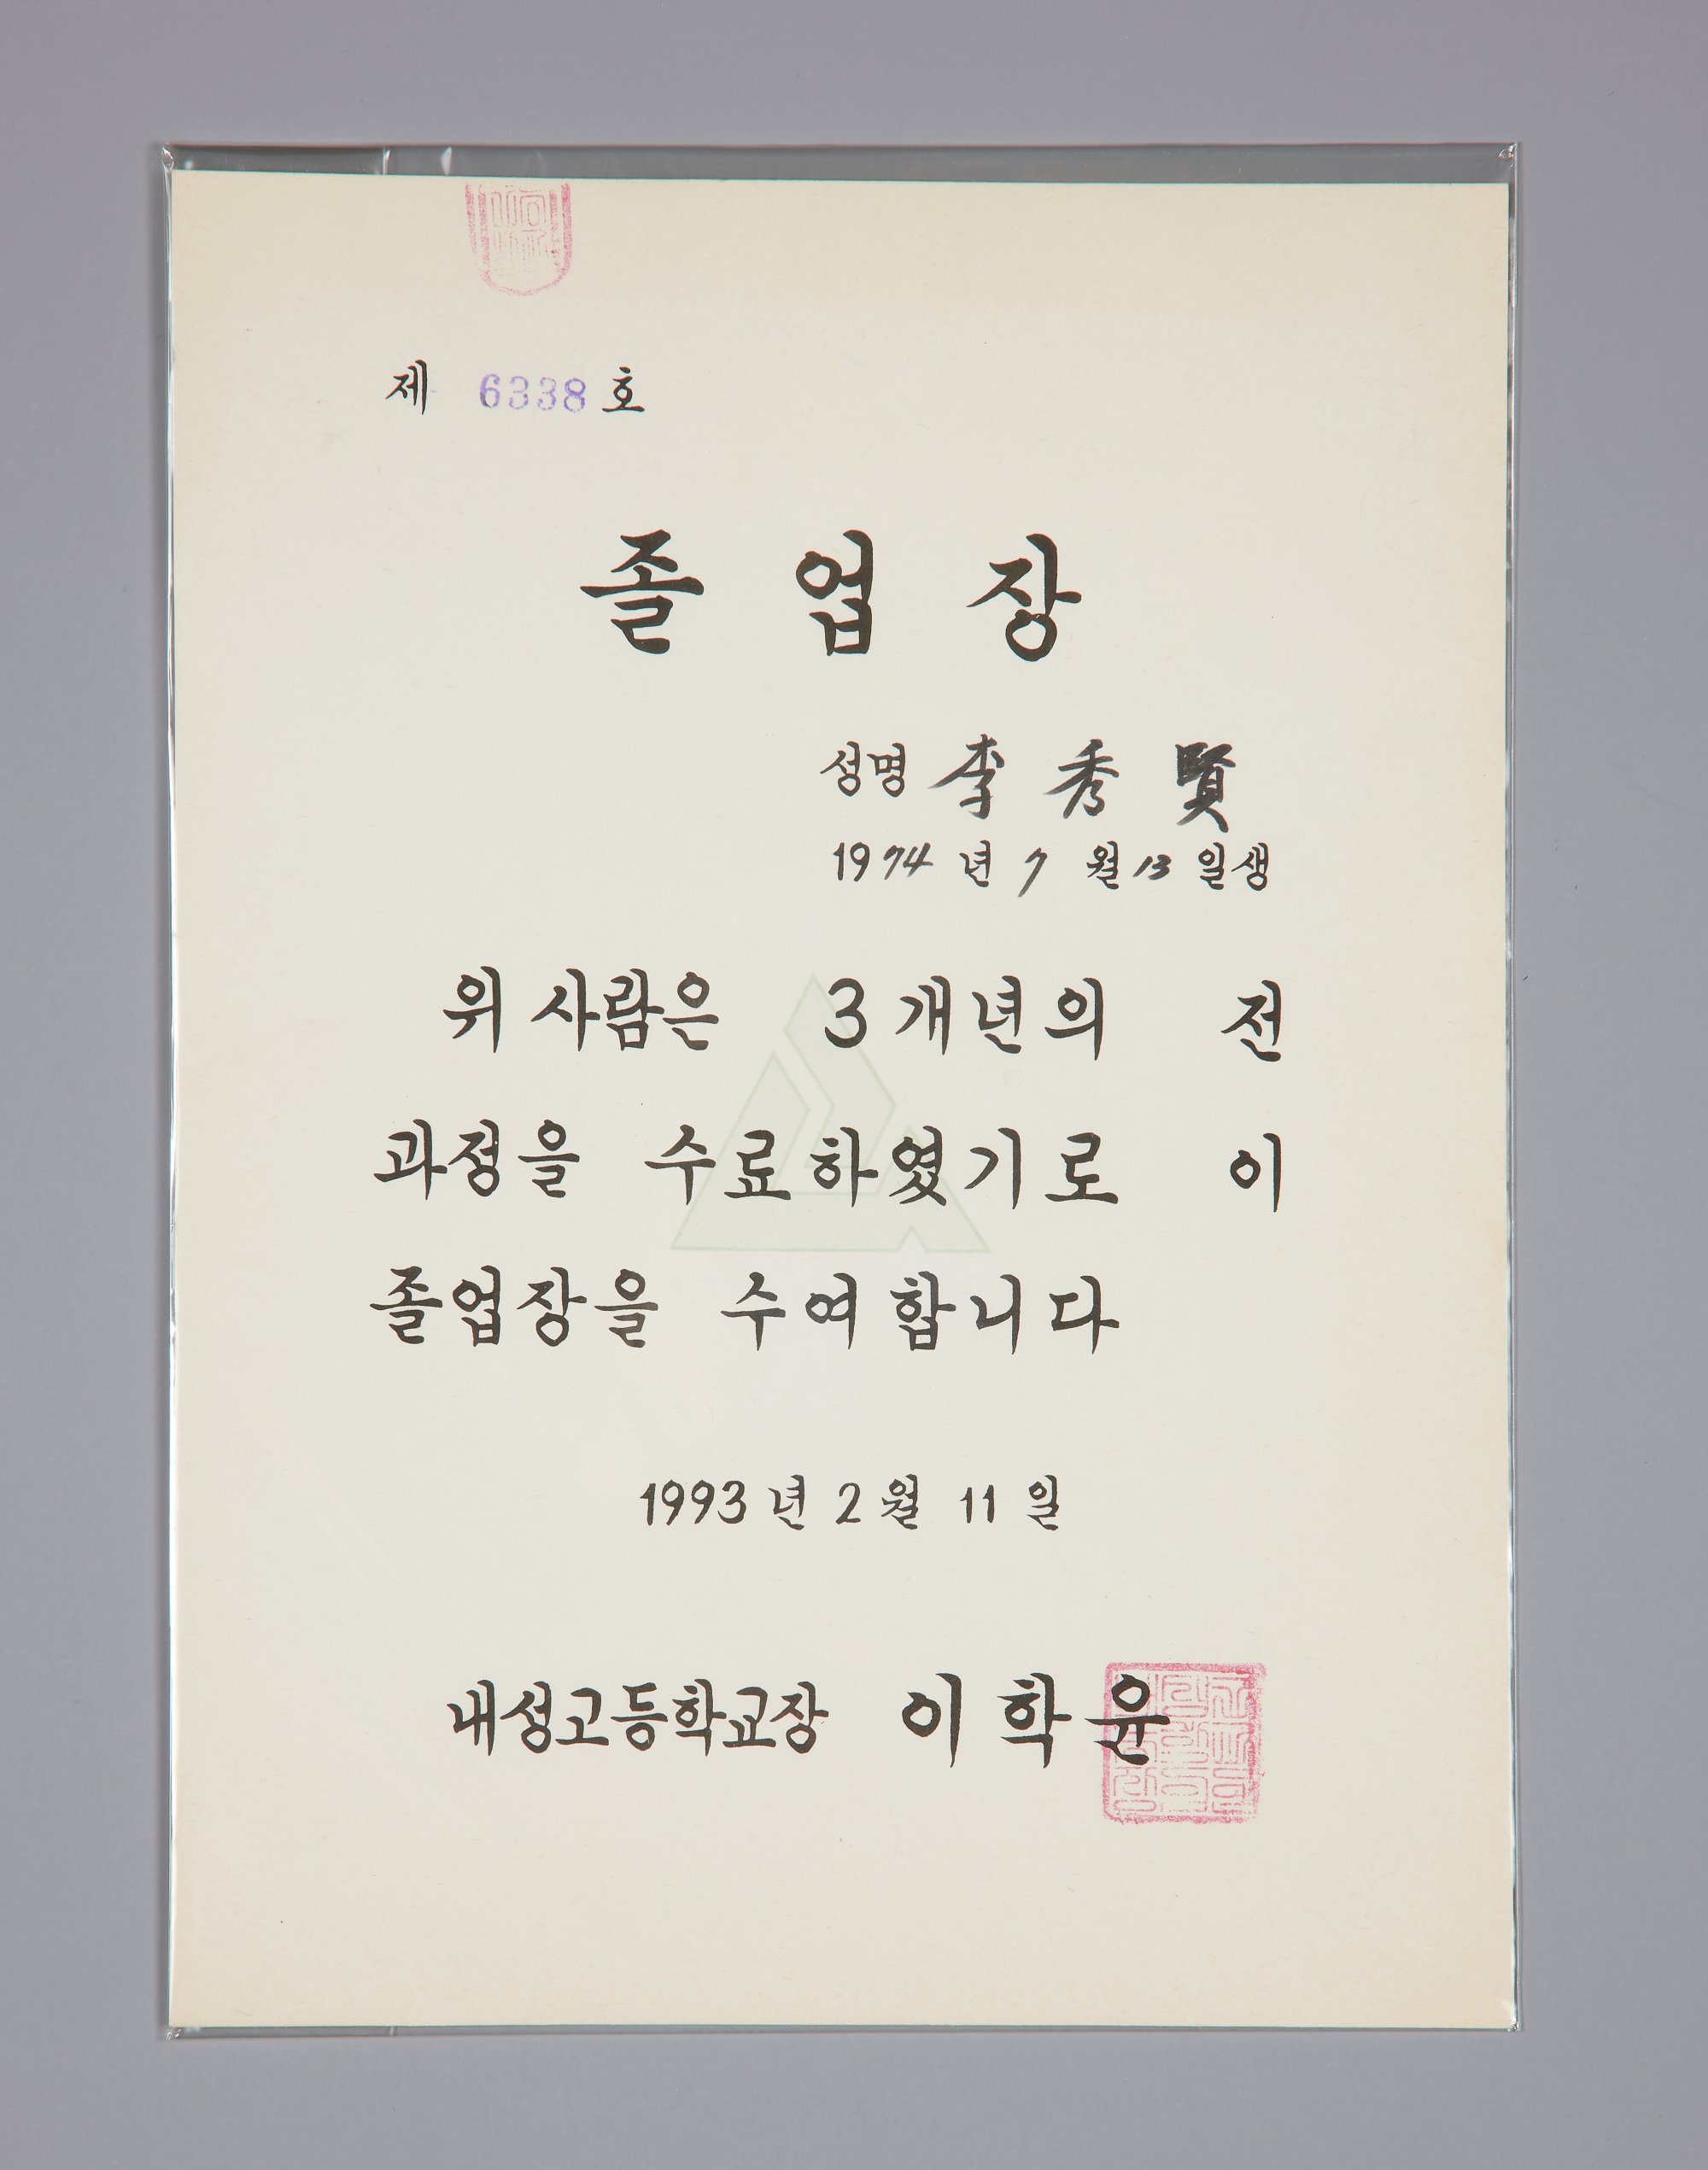 제 6338 호
졸 업 장
성명 李 秀 賢
1974 년 7 월 13 일생
위 사람은 3 개년의 전
과정을 수료하였기로 이
졸업장을 수여합니다
1993 년 2 월 11 일
내성고등학교장 이 학 윤